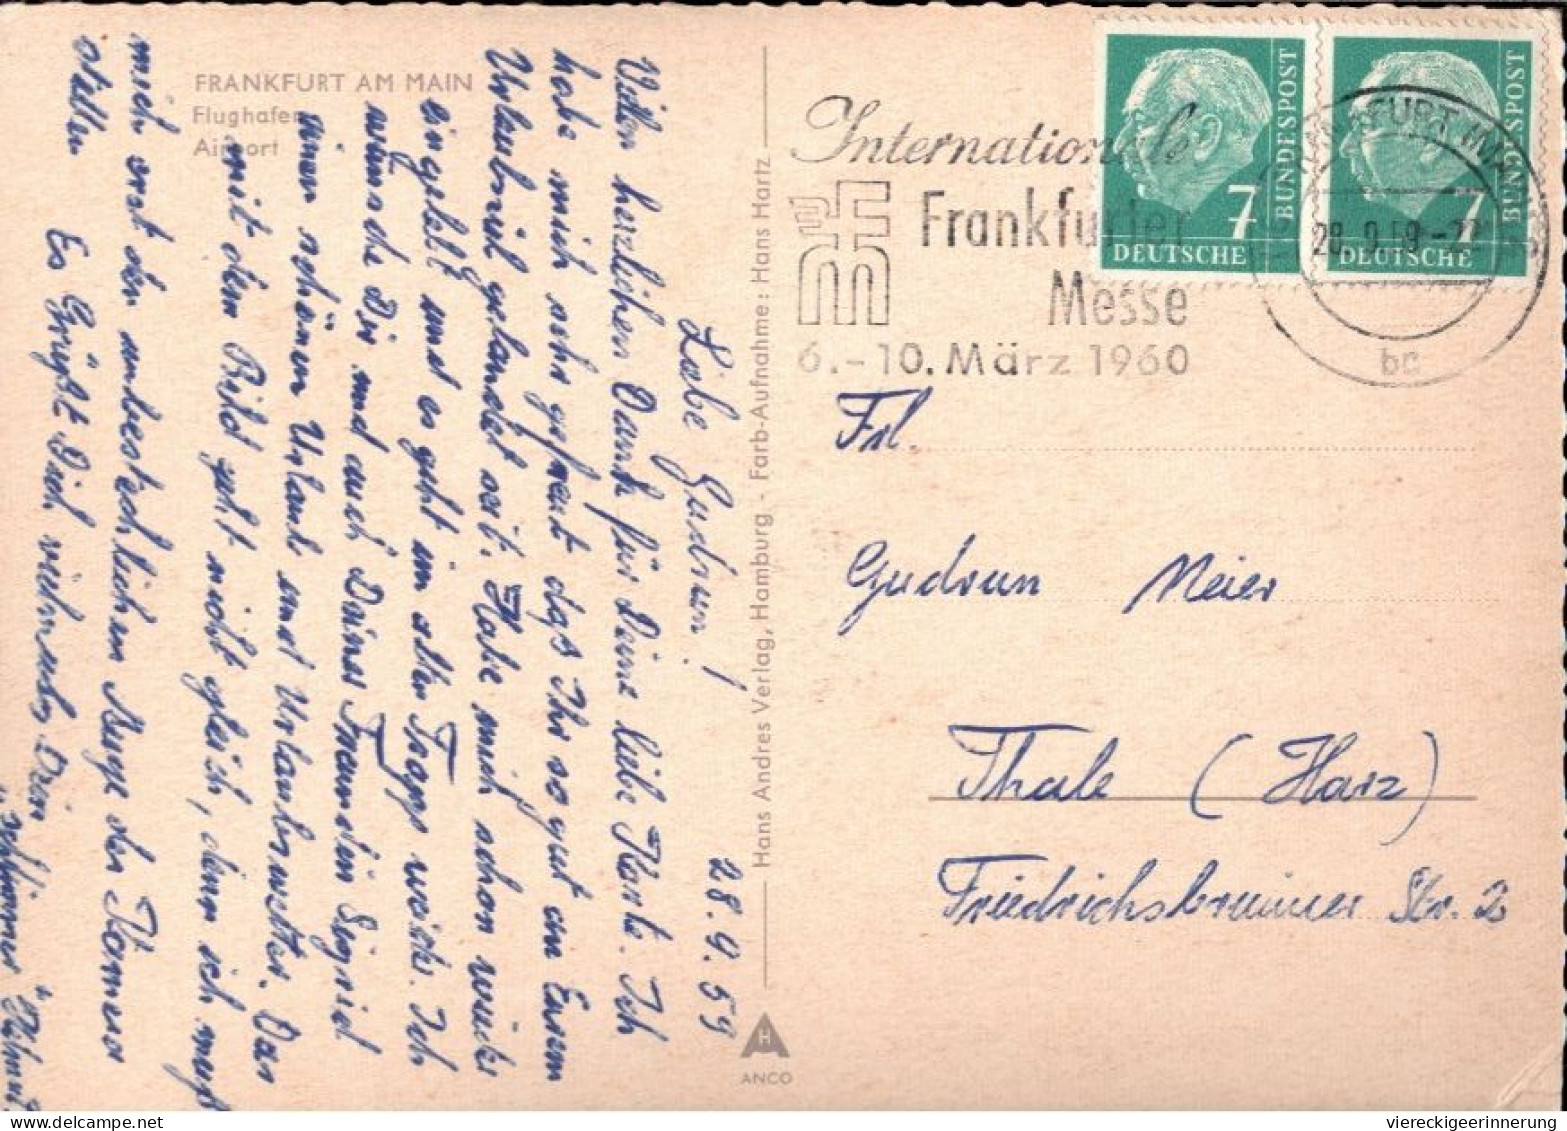 FRANKFURT AM MAIN
Flughafen
Airport
28. 9. 59
Liebe Gudrun!
Vielen herzlichen Dank für Deine liebe Karte. Ich
habe mich sehr gefreut daß Ihr so gut an Eurem
Urlaubsziel gelandet seit. Habe mich schon wieder
eingelebt und es geht im alten Trapp weiter. Ich
wünsche Dir und auch Deiner Freundin Sigrid
einen schönen Urlaub und Urlaubswetter. Das
mit dem Bild geht nicht gleich, denn ich muß
mich erst den unbestechlichen Auge der Kamera
stellen. Es Grüßt Dich vielmals Dein
"schlimmer" Helmut
Hans Andres Verlag, Hamburg - Farb-Aufnahme: Hans Hartz
H
ANCO
Internationale
Frankfurter
Messe
6.-10. März 1960
7
DEUTSCHE
BUNDESPOST
7
DEUTSCHE
BUNDESPOST
FRANKFURT (MAIN)
28. 9. 59
bc
Frl.
Gudrun Meier
Thale (Harz)
Friedrichsbrunner Str. 2
viereckigeerinnerung